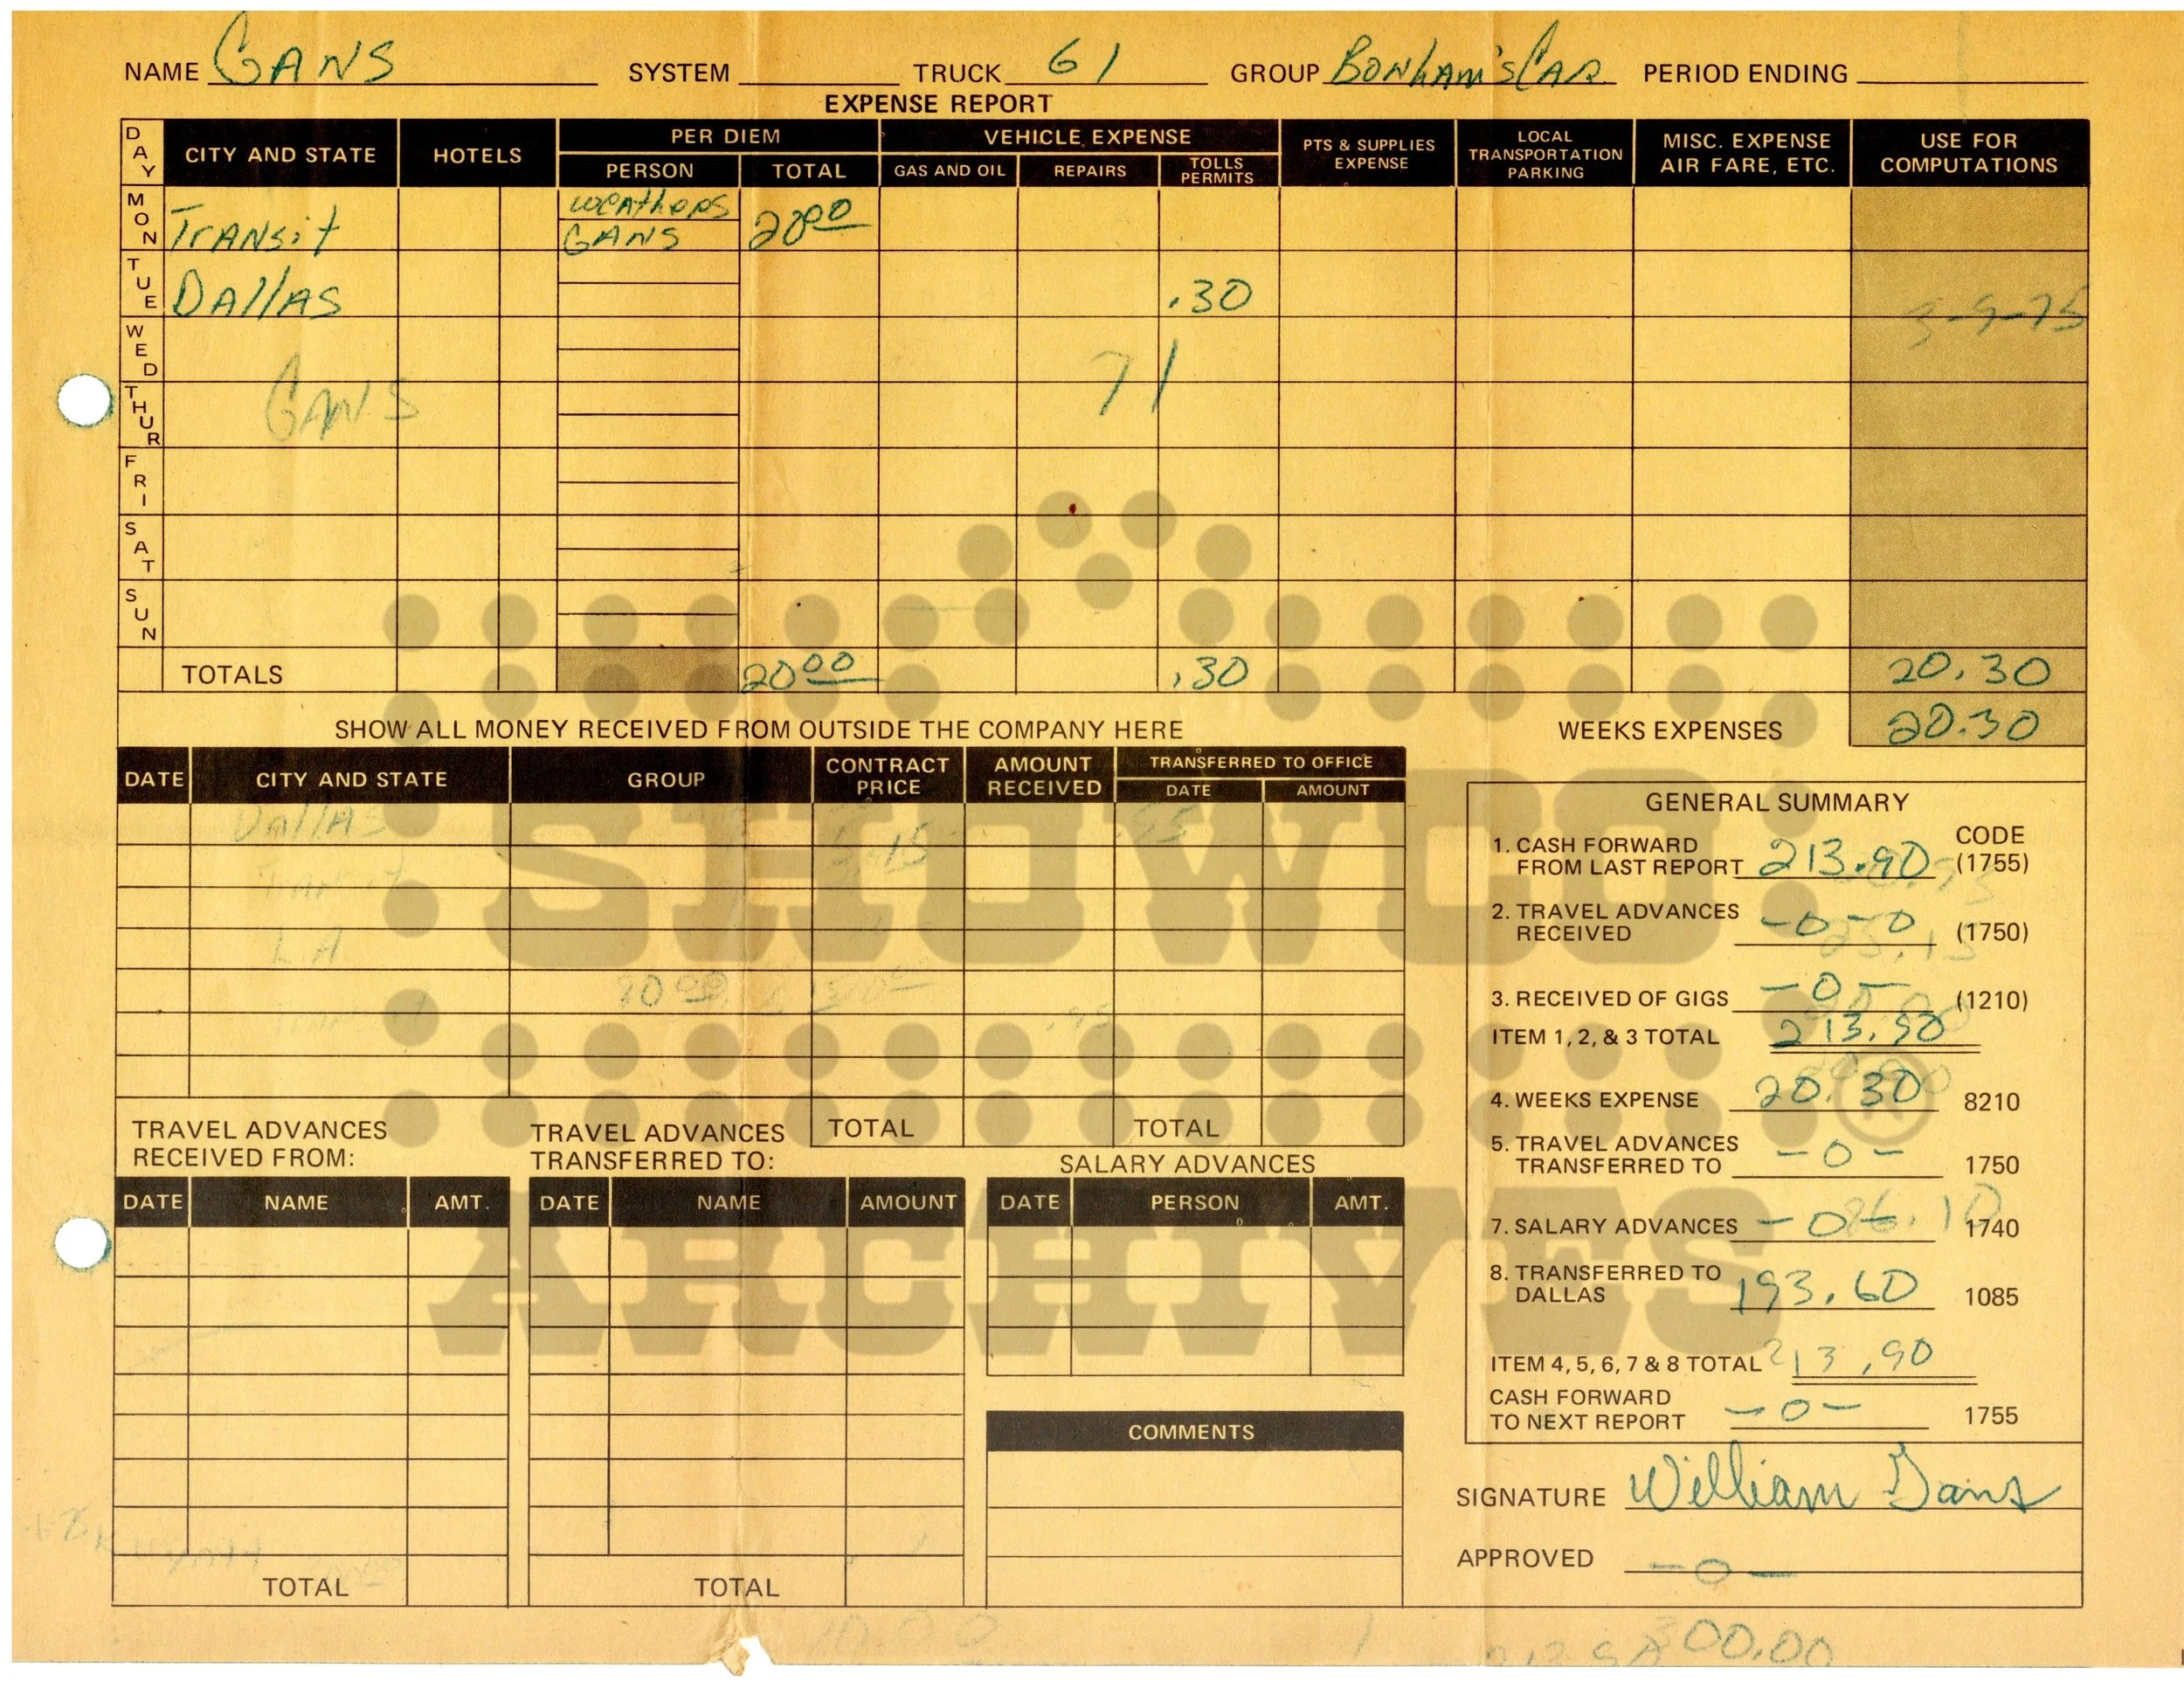 NAME GANS SYSTEM TRUCK 61 GROUP BONHAM'S CAR PERIOD ENDING
EXPENSE REPORT
DAY CITY AND STATE HOTELS PER DIEM VEHICLE EXPENSE PTS & SUPPLIES EXPENSE LOCAL TRANSPORTATION PARKING MISC. EXPENSE AIR FARE, ETC. USE FOR COMPUTATIONS
PERSON TOTAL GAS AND OIL REPAIRS TOLLS PERMITS
MON TRANSit weathers 20 00
GANS
TUE DAllAS .30
3-9-75
WED
71
THUR GANS
FRI
SAT
SUN
TOTALS 20 00 .30 20.30
SHOW ALL MONEY RECEIVED FROM OUTSIDE THE COMPANY HERE WEEKS EXPENSES 20.30
DATE CITY AND STATE GROUP CONTRACT PRICE AMOUNT RECEIVED TRANSFERRED TO OFFICE
DATE AMOUNT
DAllAS
LA
TOTAL TOTAL
GENERAL SUMMARY
CODE
1. CASH FORWARD FROM LAST REPORT 213.90 (1755)
2. TRAVEL ADVANCES RECEIVED -0-0 (1750)
3. RECEIVED OF GIGS -0- (1210)
ITEM 1, 2, & 3 TOTAL 213.90
4. WEEKS EXPENSE 20.30 8210
5. TRAVEL ADVANCES TRANSFERRED TO -0- 1750
7. SALARY ADVANCES -0- 86.10 1740
8. TRANSFERRED TO DALLAS 193.60 1085
ITEM 4, 5, 6, 7 & 8 TOTAL 213.90
CASH FORWARD TO NEXT REPORT -0- 1755
SIGNATURE William Gans
APPROVED -0-
TRAVEL ADVANCES RECEIVED FROM:
DATE NAME AMT.
TOTAL
TRAVEL ADVANCES TRANSFERRED TO:
DATE NAME AMOUNT
TOTAL
SALARY ADVANCES
DATE PERSON AMT.
COMMENTS
00.00
SHOWCO
ARCHIVES
®